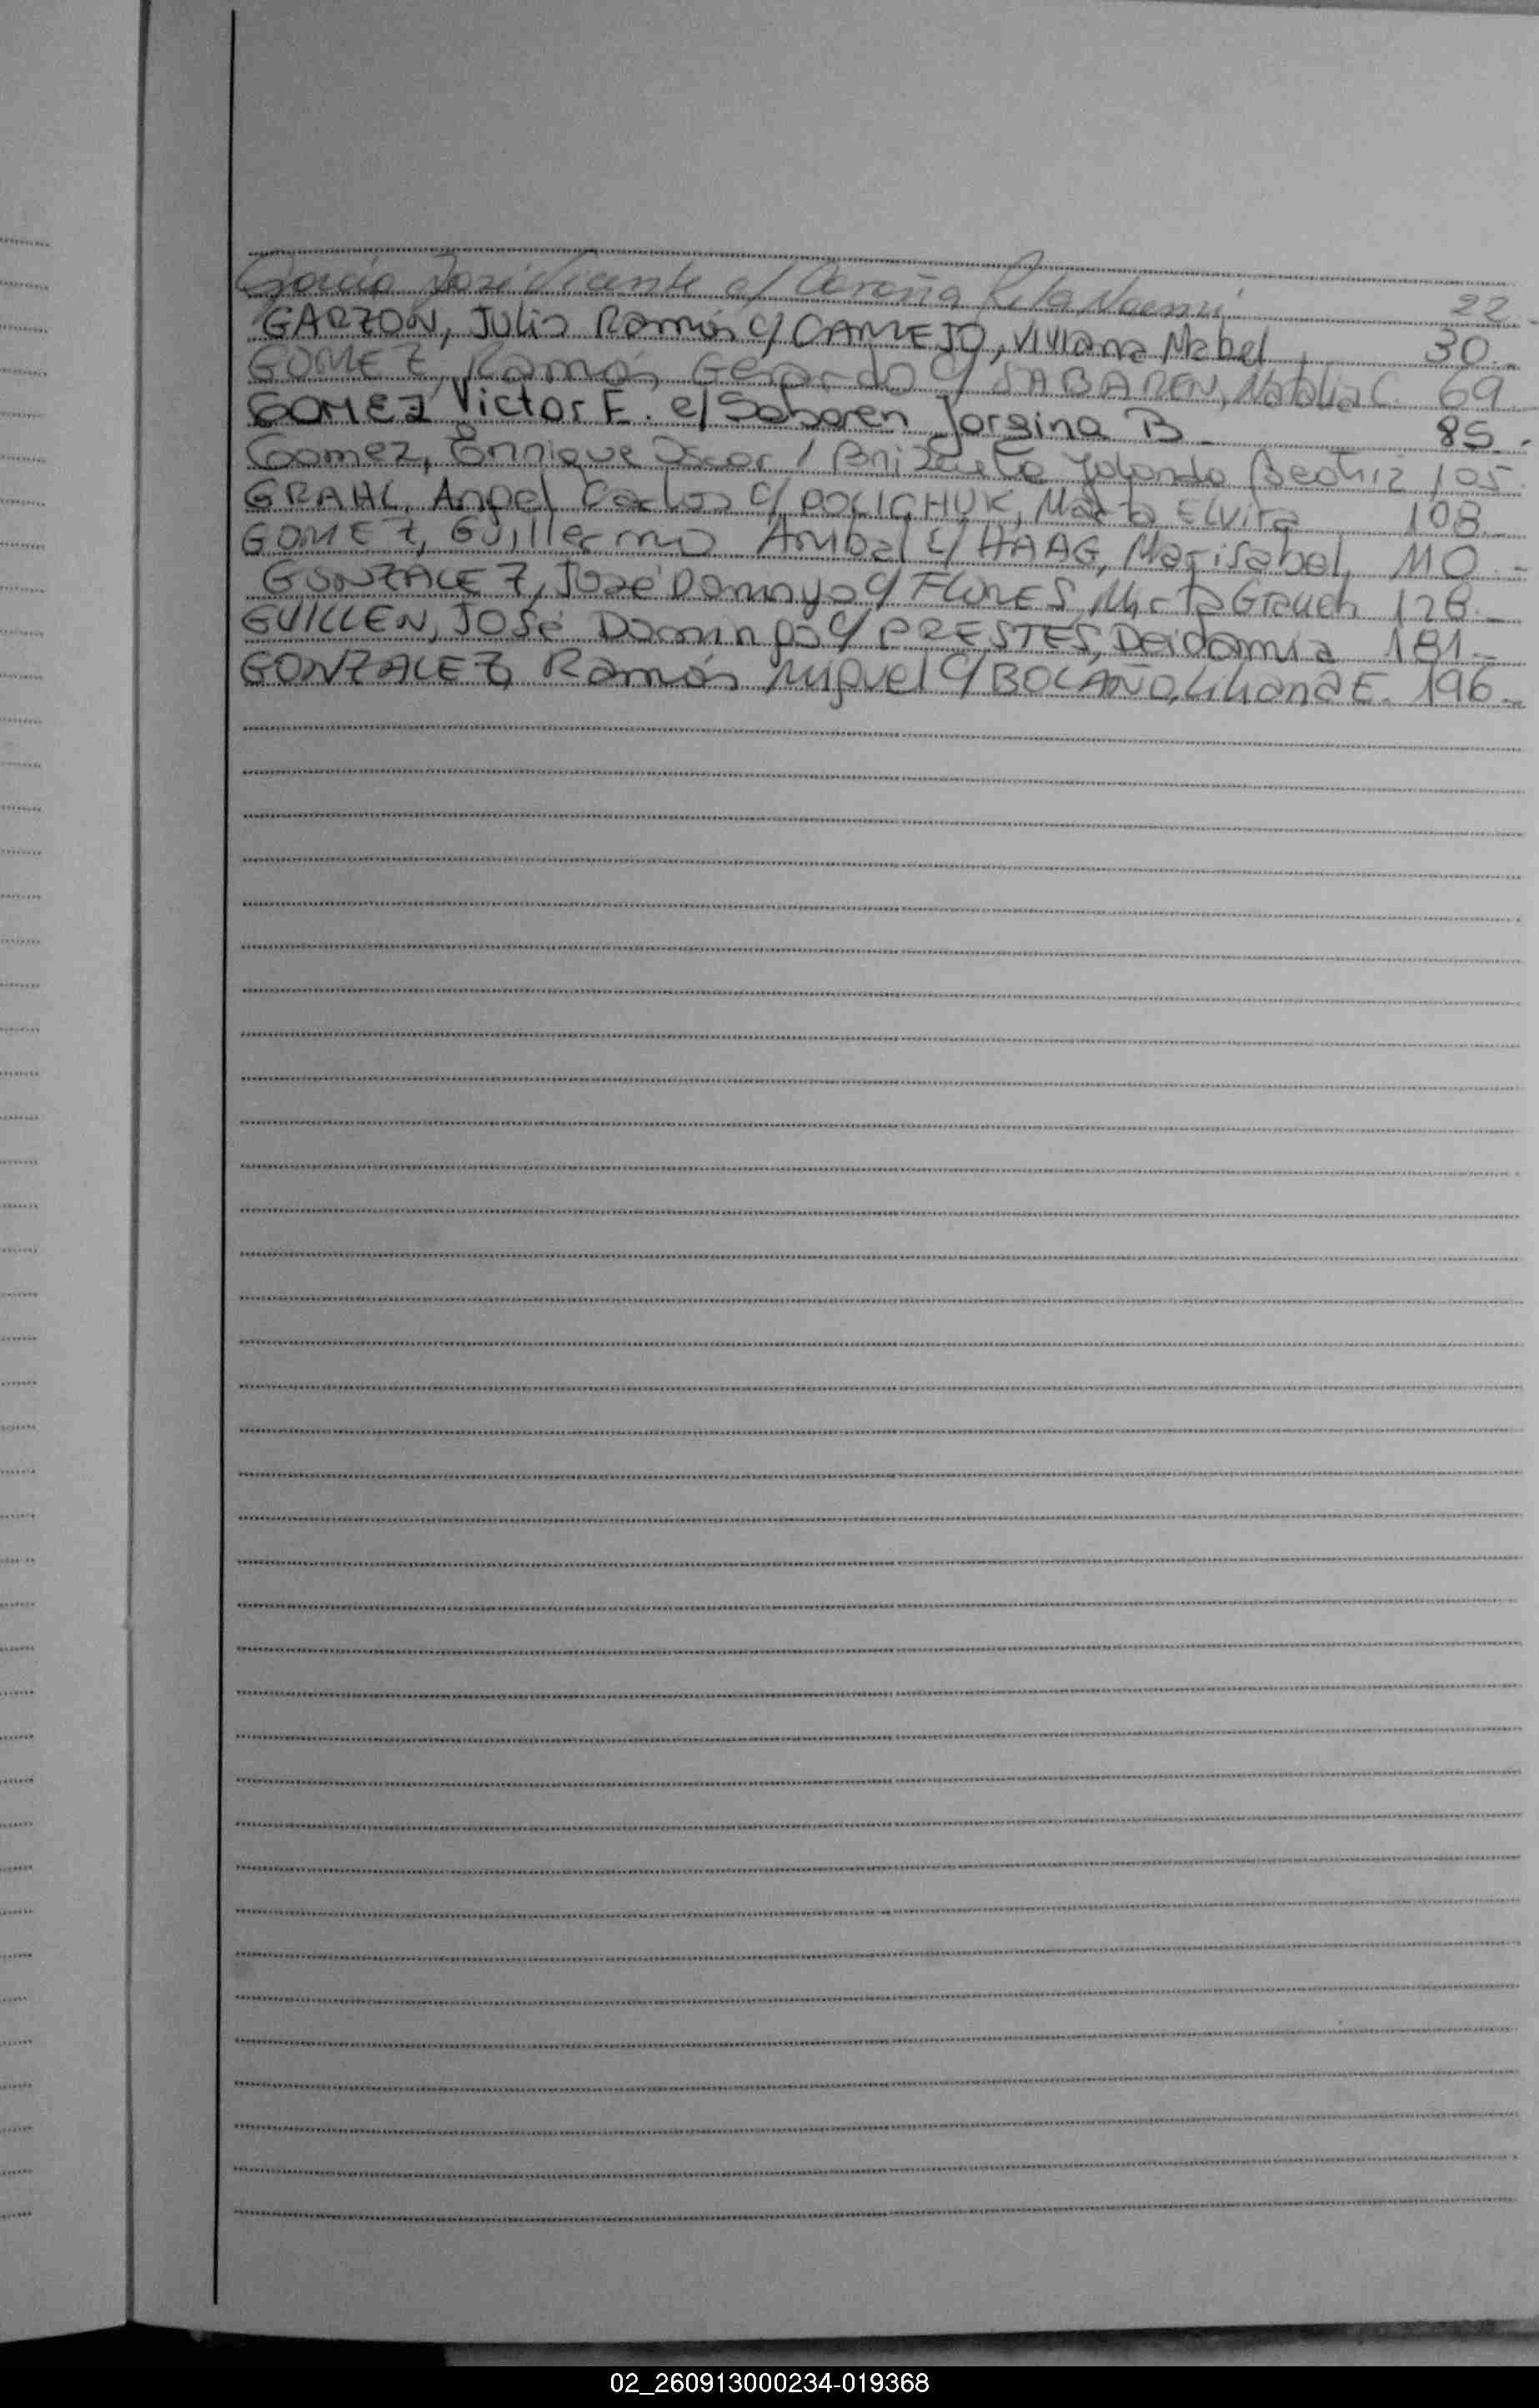 Garcia José Vicente c/ Coroña Rita Noemi 22.
GARZON, Julio Ramón c/ CAMEJO, Viviana Mabel 30.-
GOMEZ, Ramón Gerardo c/ SABAREN, Natalia C. 69
GOMEZ Victor E. c/ Sabaren Jorgina B. 85.-
Gomez, Enrique Oscar / Brizuela Yolanda Beatriz 105.
GRAHL, Angel Carlos c/ POLICHUK, Marta Elvira 108.-
GOMEZ, Guillermo Anibal c/ HAAG, Marisabel, 110.-
GONZALEZ, José c/ FLORES, Mirta 128.-
GUILLEN, José Domingo c/ PRESTES, Deidamia 181.-
GONZALEZ Ramón Miguel c/ BOLAÑO, Liliana E. 196.-
02_260913000234-019368